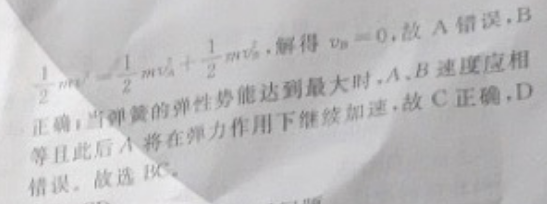 $\frac{1}{2}mv^2=\frac{1}{2}mv_A^2+\frac{1}{2}mv_B^2$,解得 $v_B=0$,故 A 错误,B
正确;当弹簧的弹性势能达到最大时,A、B 速度应相
等且此后 A 将在弹力作用下继续加速,故 C 正确,D
错误。故选 BC。